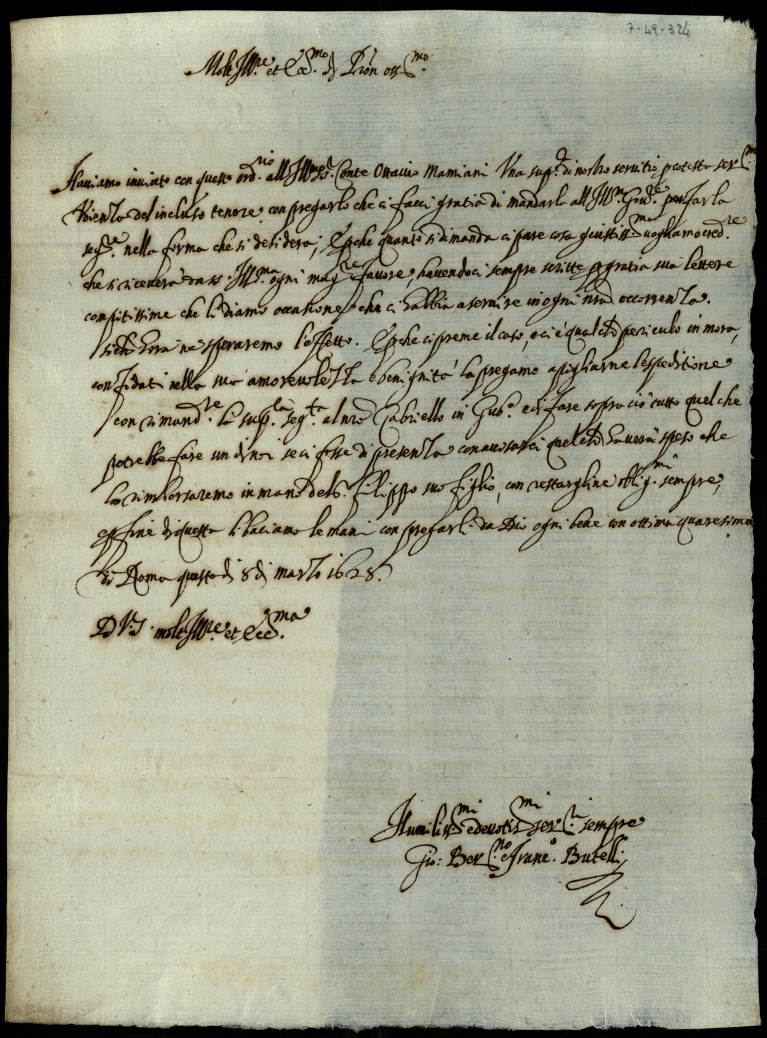 7-49-324
Molt Ill.re et Ecc.mo Sr Pron oss.mo
Haviamo inviato con questo ord.rio all Ill.mo Sr. Conte Ottavio Mamiani Una sup.ca di nostro servitio
del incluso tenore con pregarlo che ci facci gratia di mandarla all Ill.mo Gov.re per farla
seg.re nella forma che si desidera, e perche quanto si dimanda ci pare cosa giustiss.ma vogliamo cred.re
che si riceverà da ss. Ill.ma ogni mag.re favore, havendoci sempre scritte gratia sua lettere
compitissime che li diamo occasione che ci habbia a servire in ogni nra occorrenza.
si che hora ne speraremo l'effetto. E perche ci preme il caso, e ci è qualche periculo in mora,
confidati nella sua amorevolezza e benignità la pregamo a pigliarne l'espeditione
con rimand.re la sup.ca seg.ta al nro Gabriello in Gub.o e di fare sopra ciò tutto quel che
potrebbe fare un di noi se ci fosse di presenza con avisarci quel che haverà speso che
lo rimborsaremo in mano del Sr. Filippo suo figlio, con restargline oblig.mi sempre,
e per fine di questa li baciamo le mani con pregarli da Dio ogni bene con ottima quaresima
di Roma questo dì 8 di marzo 1628.
D V.S. molt Ill.re et Ecc.ma
Humiliss.mi e devotiss.mi ser.ri sempre
Gio: Ber.no e Franc.o Butelli